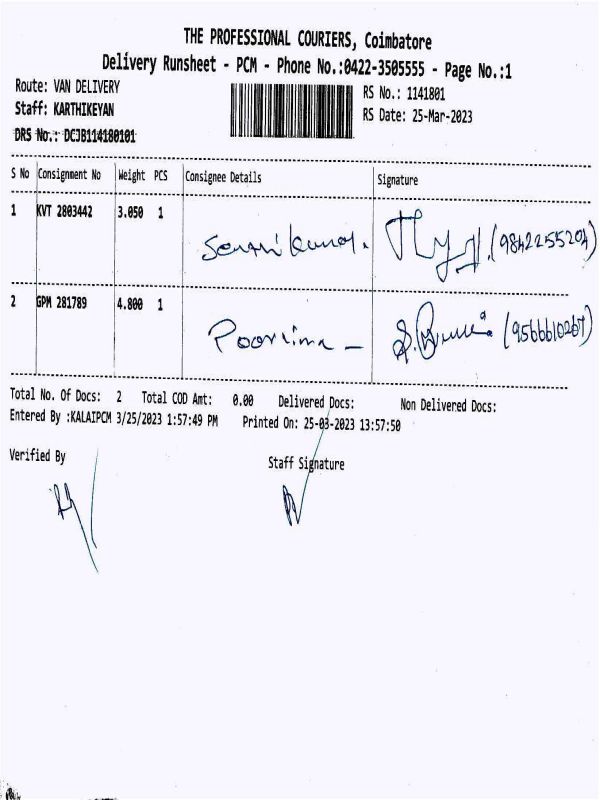 THE PROFESSIONAL COURIERS, Coimbatore
Delivery Runsheet - PCM - Phone No.:0422-3505555 - Page No.:1
Route: VAN DELIVERY
RS No.: 1141801
Staff: KARTHIKEYAN
RS Date: 25-Mar-2023
DRS No.: DCJB114180101
S No Consignment No Weight PCS Consignee Details Signature
1 KVT 2803442 3.050 1
(9842255204)
2 GPM 281789 4.800 1
Poornima - (9566610267)
Total No. Of Docs: 2 Total COD Amt: 0.00 Delivered Docs: Non Delivered Docs:
Entered By :KALAIPCM 3/25/2023 1:57:49 PM Printed On: 25-03-2023 13:57:50
Verified By Staff Signature